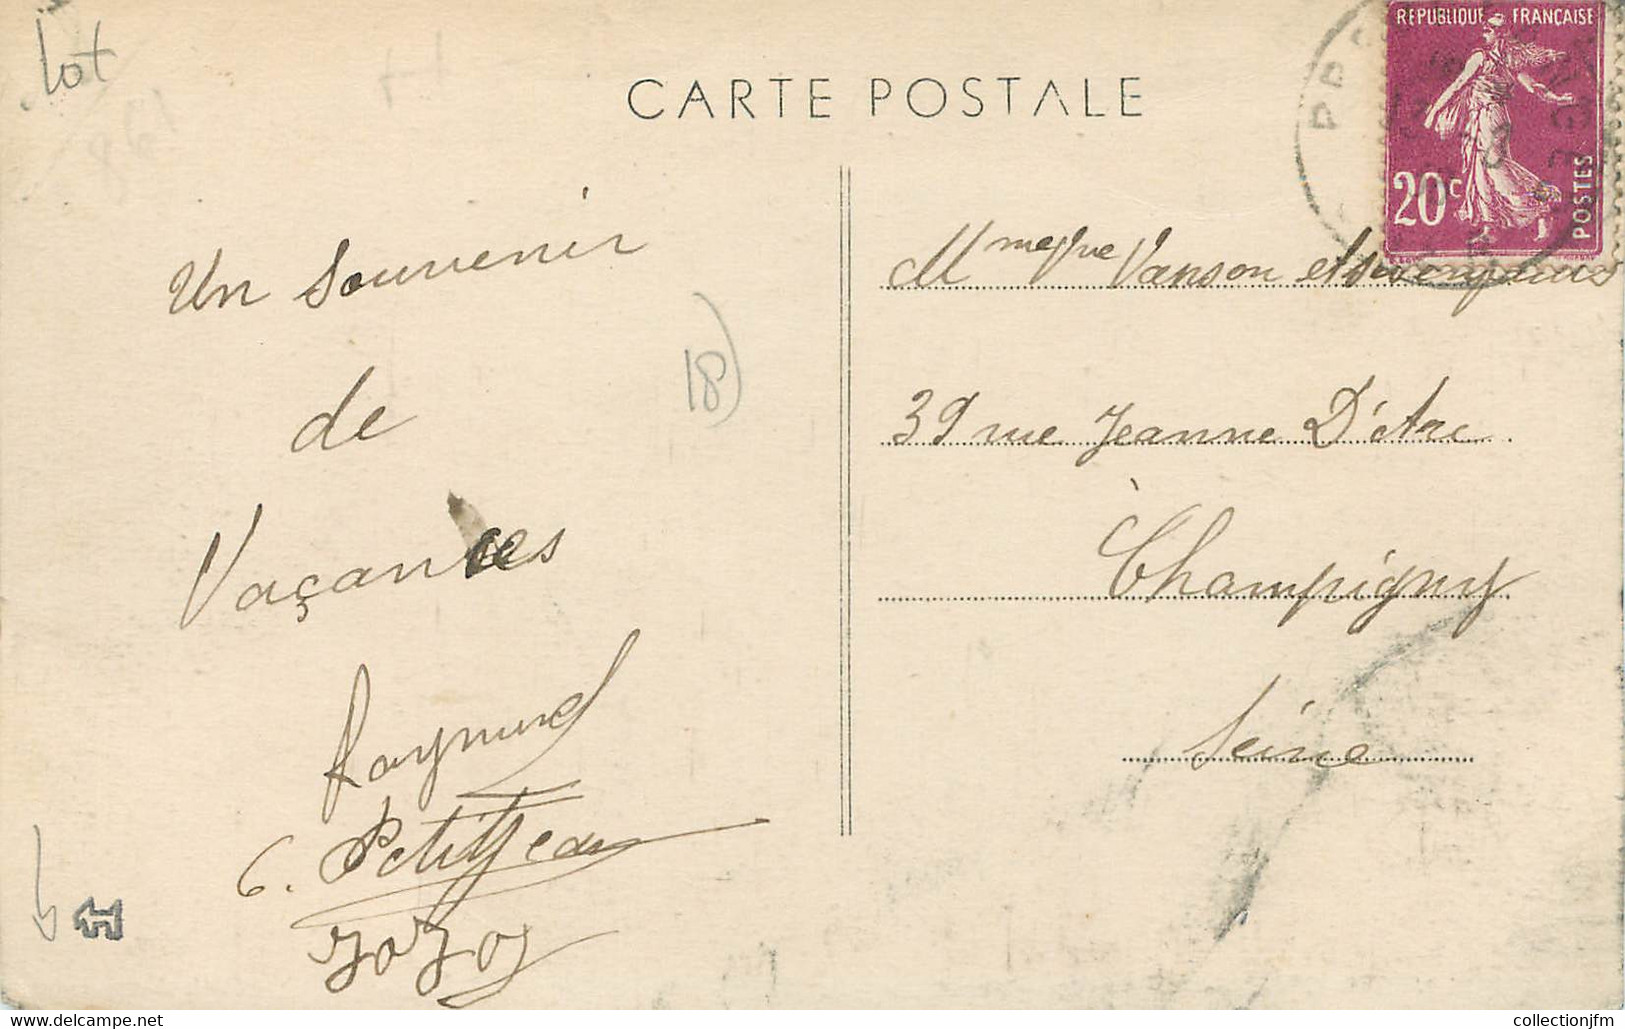 lot
CARTE POSTALE
REPUBLIQUE FRANÇAISE
20c
POSTES
Un Souvenir
de
Vaçances
Raymond
G. Petitjean
JoJo
18)
Mme Vve Vanson et
39 rue Jeanne D'Arc
Champigny
Seine
collectionjfm